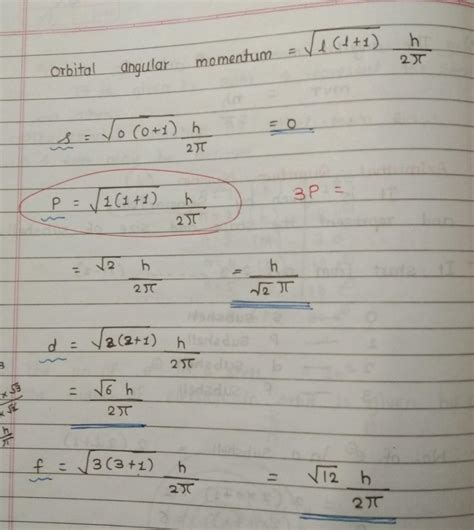 orbital angular momentum = √l(l+1) h/2π
s = √0(0+1) h/2π = 0
P = √1(1+1) h/2π 3P =
= √2 h/2π = h/√2 π
d = √2(2+1) h/2π
= √6 h/2π
f = √3(3+1) h/2π = √12 h/2π